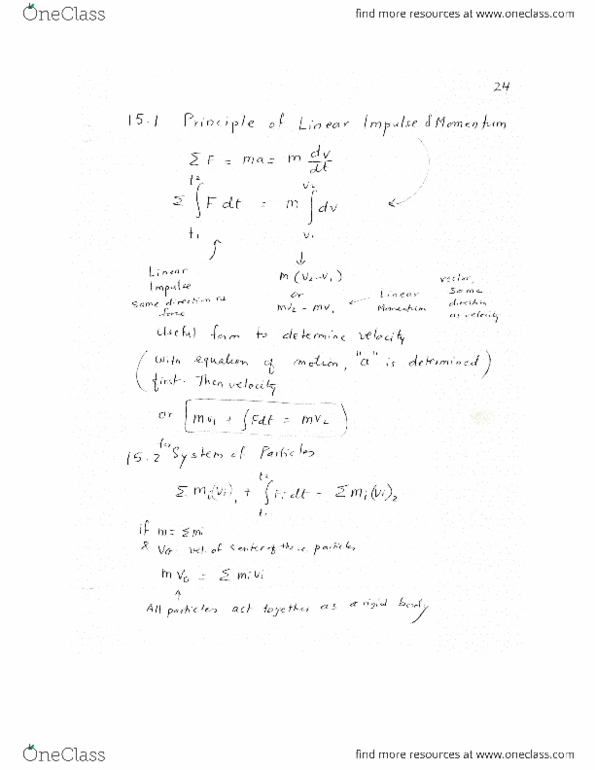 OneClass
find more resources at www.oneclass.com
24
15.1 Principle of Linear Impulse & Momentum
Σ F = ma = m dv/dt
Σ ∫ F dt = m ∫ dv
t2
t1
v2
v1
Linear
Impulse
same direction as
force
m (v2 - v1)
or
mv2 - mv1
Linear
Momentum
vector
Same
direction
as velocity
Useful form to determine velocity
(with equation of motion, "a" is determined
first. Then velocity)
or mv1 + ∫Fdt = mv2
15.2 for System of Particles
Σ mi(vi)1 + ∫ Fi dt - Σ mi(vi)2
t2
t1
if m = Σmi
& VG vel. of center of these particles
m VG = Σ mivi
All particles act together as a rigid body
OneClass
find more resources at www.oneclass.com